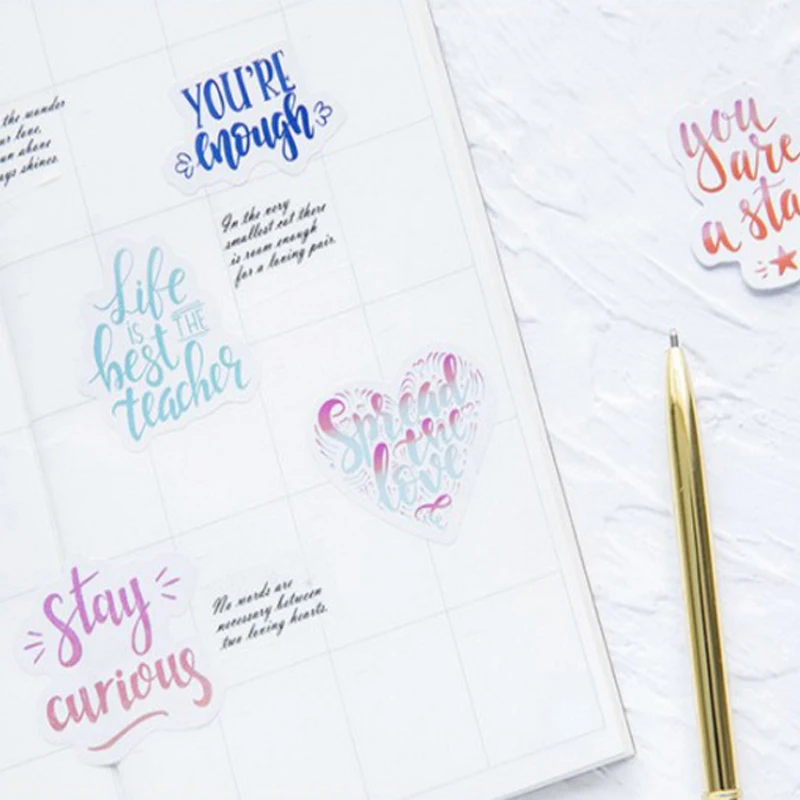 the wonder
ur love,
un above
ays shines.
YOU'RE
enough
In the very
smallest cot there
is room enough
for a loving pair.
Life
IS THE
best
teacher
Spread
the
love
stay
curious
No words are
necessary between
two loving hearts.
you
are
a sta